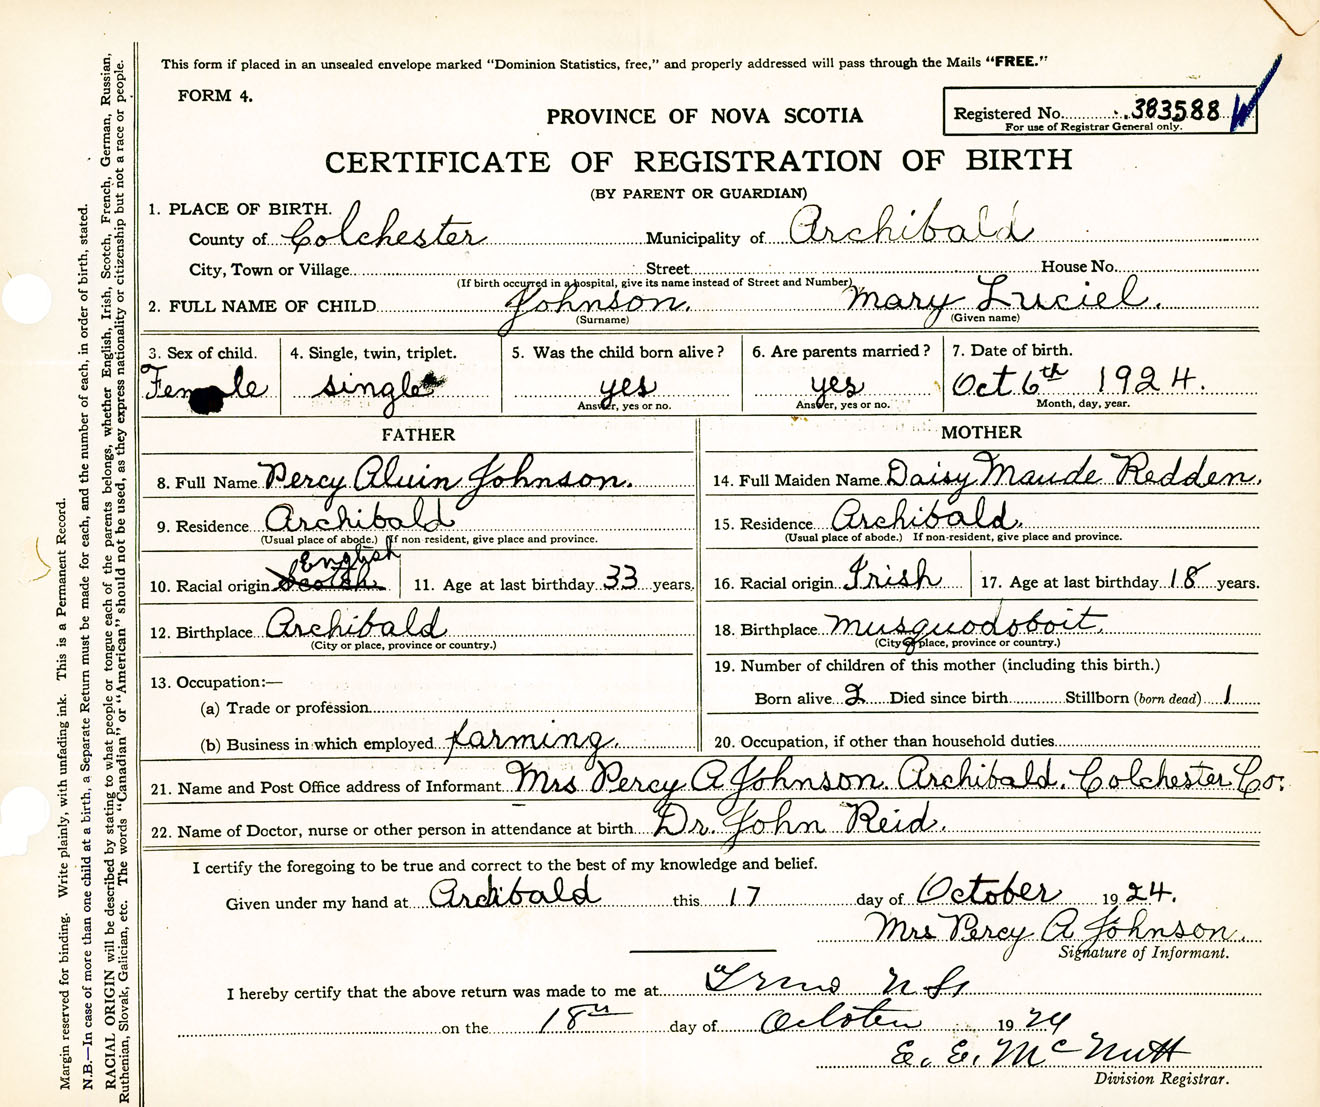 This form if placed in an unsealed envelope marked "Dominion Statistics, free," and properly addressed will pass through the Mails "FREE."
FORM 4.
PROVINCE OF NOVA SCOTIA
Registered No. 383588
For use of Registrar General only.
CERTIFICATE OF REGISTRATION OF BIRTH
(BY PARENT OR GUARDIAN)
1. PLACE OF BIRTH.
County of Colchester Municipality of Archibald
City, Town or Village Street House No.
(If birth occurred in a hospital, give its name instead of Street and Number)
2. FULL NAME OF CHILD Johnson. Mary Luciel.
(Surname) (Given name)
3. Sex of child. 4. Single, twin, triplet. 5. Was the child born alive? 6. Are parents married? 7. Date of birth.
Female single yes yes Oct 6th 1924.
Answer, yes or no. Answer, yes or no. Month, day, year.
FATHER MOTHER
8. Full Name Percy Alvin Johnson. 14. Full Maiden Name Daisy Maude Redden.
9. Residence Archibald 15. Residence Archibald.
(Usual place of abode.) If non-resident, give place and province. (Usual place of abode.) If non-resident, give place and province.
English
10. Racial origin Scotch 11. Age at last birthday 33 years. 16. Racial origin Irish 17. Age at last birthday 18 years.
12. Birthplace Archibald 18. Birthplace Musquodoboit.
(City or place, province or country.) (City or place, province or country.)
13. Occupation:— 19. Number of children of this mother (including this birth.)
(a) Trade or profession Born alive 2 Died since birth Stillborn (born dead) 1
(b) Business in which employed farming. 20. Occupation, if other than household duties
21. Name and Post Office address of Informant Mrs Percy A Johnson. Archibald. Colchester Co:
22. Name of Doctor, nurse or other person in attendance at birth Dr. John Reid.
I certify the foregoing to be true and correct to the best of my knowledge and belief.
Given under my hand at Archibald this 17 day of October 1924.
Mrs Percy A Johnson.
Signature of Informant.
I hereby certify that the above return was made to me at N S
on the 18th day of October 1924
E. E. McNutt
Division Registrar.
Margin reserved for binding. Write plainly, with unfading ink. This is a Permanent Record.
N.B.—In case of more than one child at a birth, a Separate Return must be made for each, and the number of each, in order of birth, stated.
RACIAL ORIGIN will be described by stating to what people or tongue each of the parents belongs, whether English, Irish, Scotch, French, German, Russian,
Ruthenian, Slovak, Galician, etc. The words "Canadian" or "American" should not be used, as they express nationality or citizenship but not a race or people.